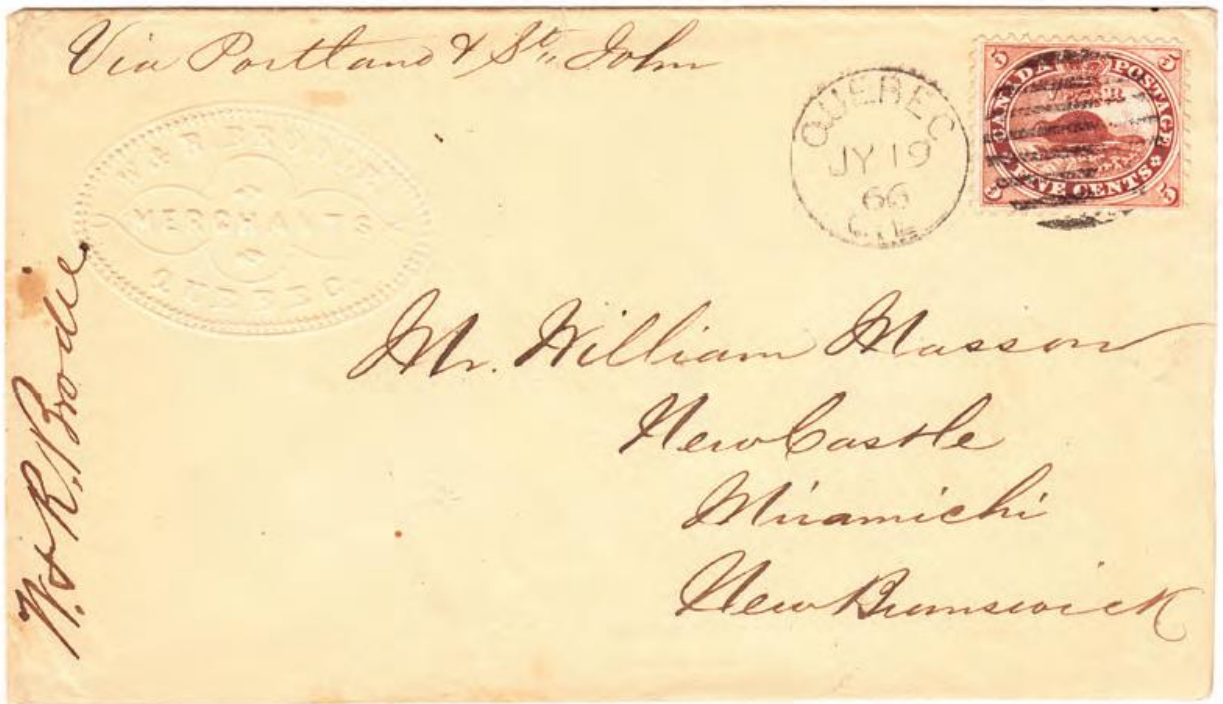 Via Portland & St,, John
W & R BRODIE
MERCHANTS
QUEBEC.
W. & R. Brodie
QUEBEC
JY 19
66
C.E.
5 5
CANADA POSTAGE
FIVE CENTS
5 5
Mr. William Masson
NewCastle
Miramichi
New Brunswick